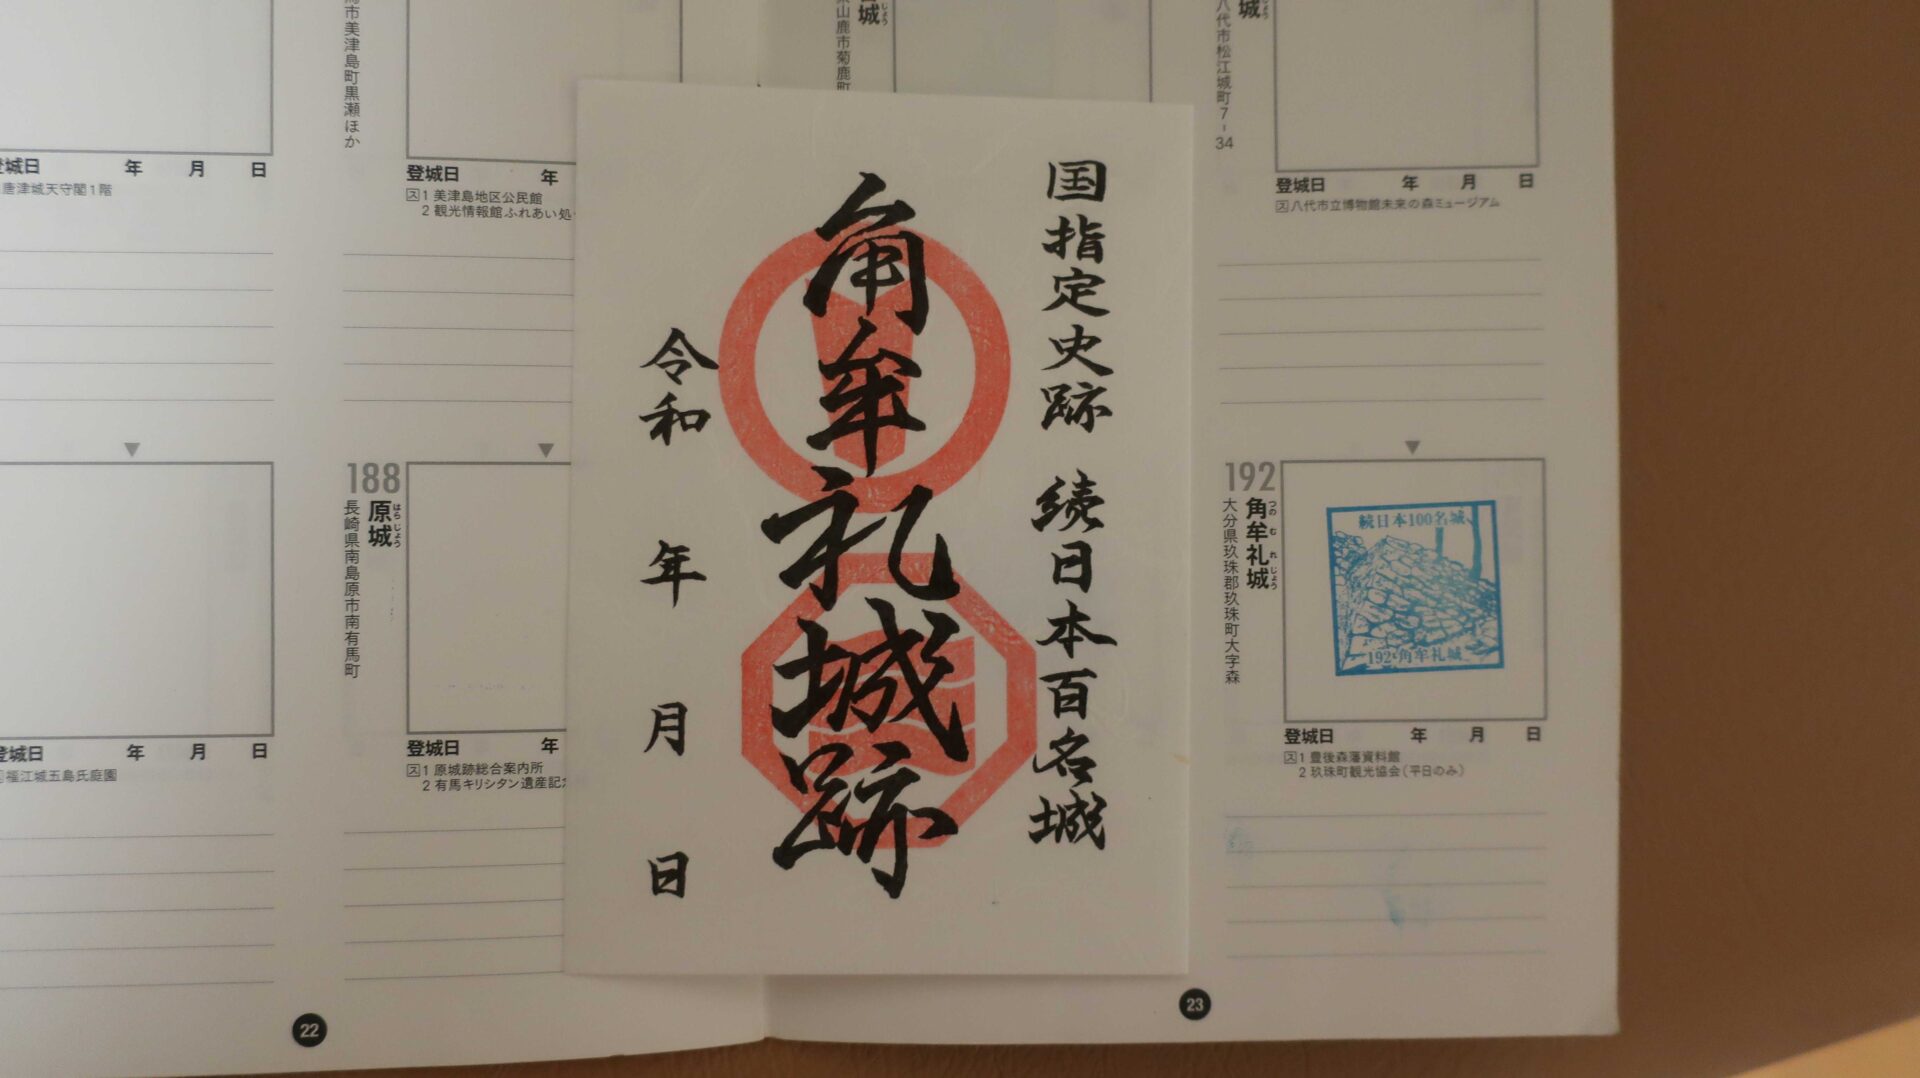 国指定史跡 続日本百名城
角牟礼城跡
令和 年 月 日
市美津島町黒瀬ほか
山鹿市菊鹿町
城
じょう
八代市松江城町7-34
城
じょう
登城日 年 月 日
唐津城天守閣1階
登城日 年
ス1 美津島地区公民館
2 観光情報館ふれあい処
登城日 年 月 日
ス八代市立博物館未来の森ミュージアム
▼
▼
▼
188
原城
はらじょう
長崎県南島原市南有馬町
192
角牟礼城
つのむれじょう
大分県玖珠郡玖珠町大字森
続日本100名城
192・角牟礼城
登城日 年 月 日
福江城五島氏庭園
登城日 年
ス1 原城跡総合案内所
2 有馬キリシタン遺産記
登城日 年 月 日
ス1 豊後森藩資料館
2 玖珠町観光協会(平日のみ)
22
23